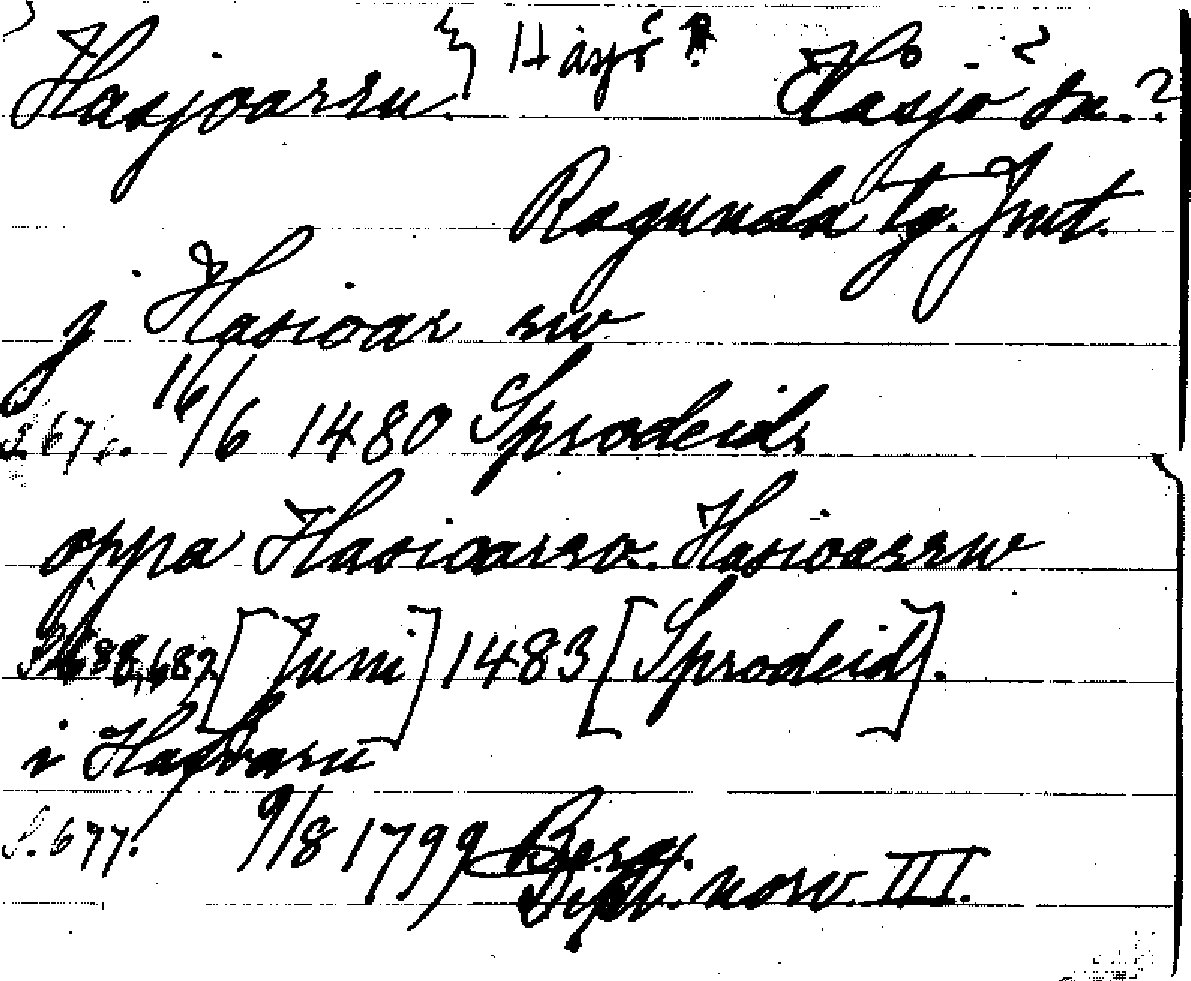 Hasjoarru. } Håsjö? Håsjö sn.?
Ragunda tg. Jmt.
j Hasioar rw
S. 671. 16/6 1480 Sprodeids
oppa Hasioarro. Hasioarrw
S. 688, 687 [Juni] 1483 [Sprodeids].
i Hasioaru
S. 677. 9/8 1499 Berg.
Dipl. norv. III.